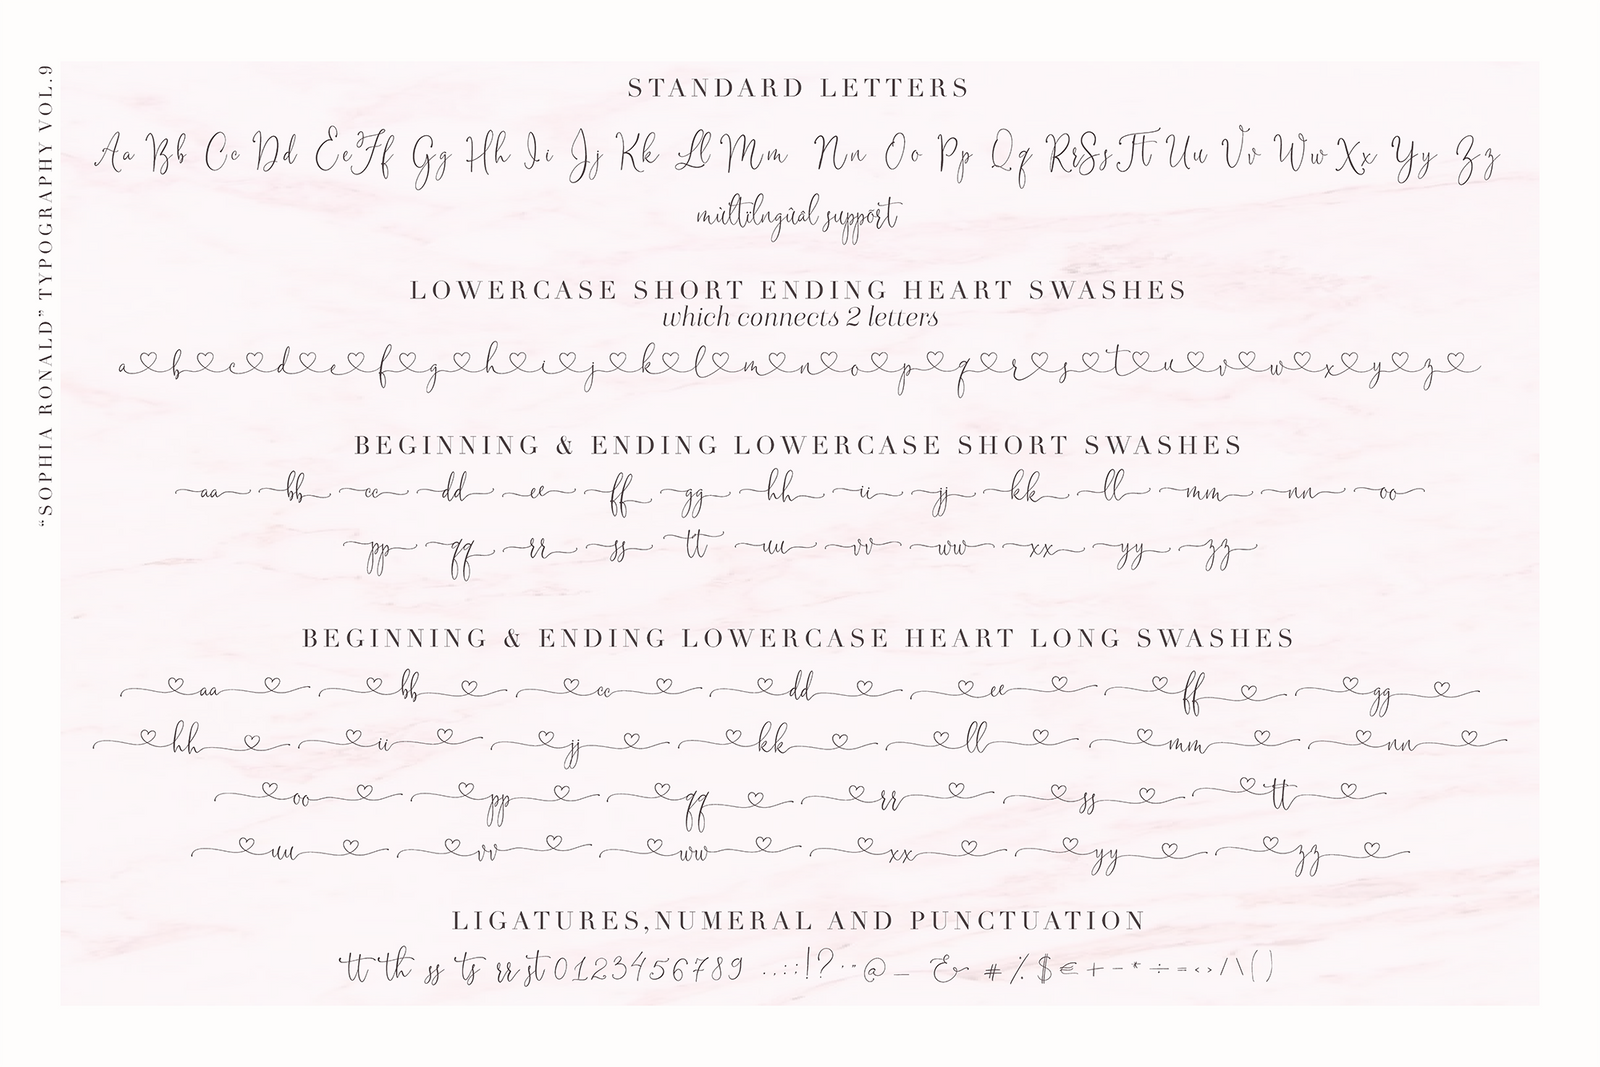 "SOPHIA RONALD" TYPOGRAPHY VOL.9
STANDARD LETTERS
Aa Bb Cc Dd Ee Ff Gg Hh Ii Jj Kk Ll Mm Nn Oo Pp Qq Rr Ss Tt Uu Vv Ww Xx Yy Zz
mùltilngûal suppőrt
LOWERCASE SHORT ENDING HEART SWASHES
which connects 2 letters
a b c d e f g h i j k l m n o p q r s t u v w x y z
BEGINNING & ENDING LOWERCASE SHORT SWASHES
aa bb cc dd ee ff gg hh ii jj kk ll mm nn oo
pp qq rr ss tt uu vv ww xx yy zz
BEGINNING & ENDING LOWERCASE HEART LONG SWASHES
aa bb cc dd ee ff gg
hh ii jj kk ll mm nn
oo pp qq rr ss tt
uu vv ww xx yy zz
LIGATURES,NUMERAL AND PUNCTUATION
tt th ss ts rr st 0123456789 ..::!?··@_ & #/.$€+-*÷=<>/\()